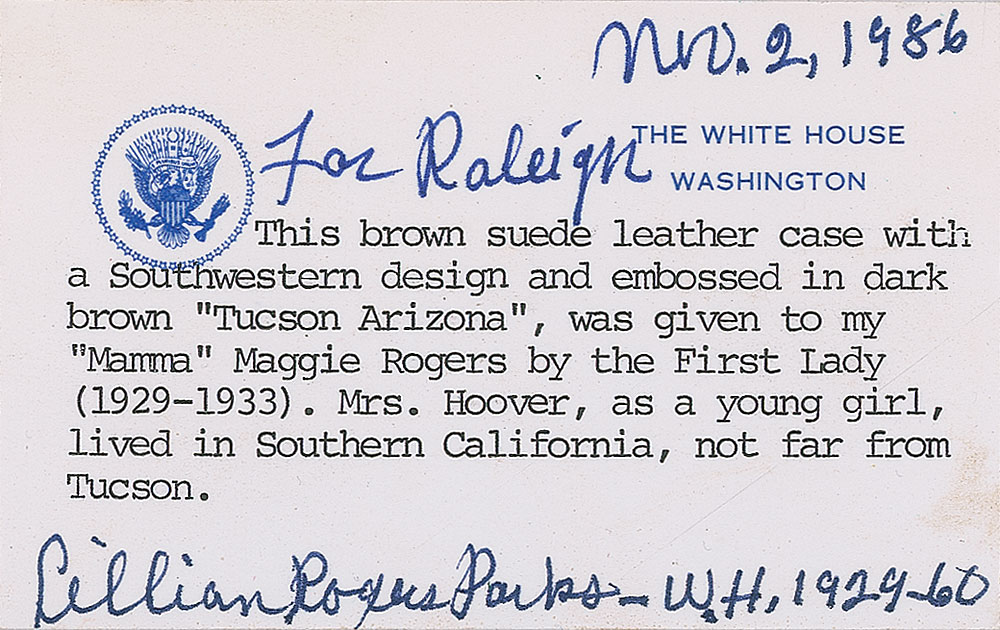 Nov. 2, 1986
For Raleigh
THE WHITE HOUSE
WASHINGTON
This brown suede leather case with
a Southwestern design and embossed in dark
brown "Tucson Arizona", was given to my
"Mamma" Maggie Rogers by the First Lady
(1929-1933). Mrs. Hoover, as a young girl,
lived in Southern California, not far from
Tucson.
Lillian Rogers Parks - W.H, 1929-60